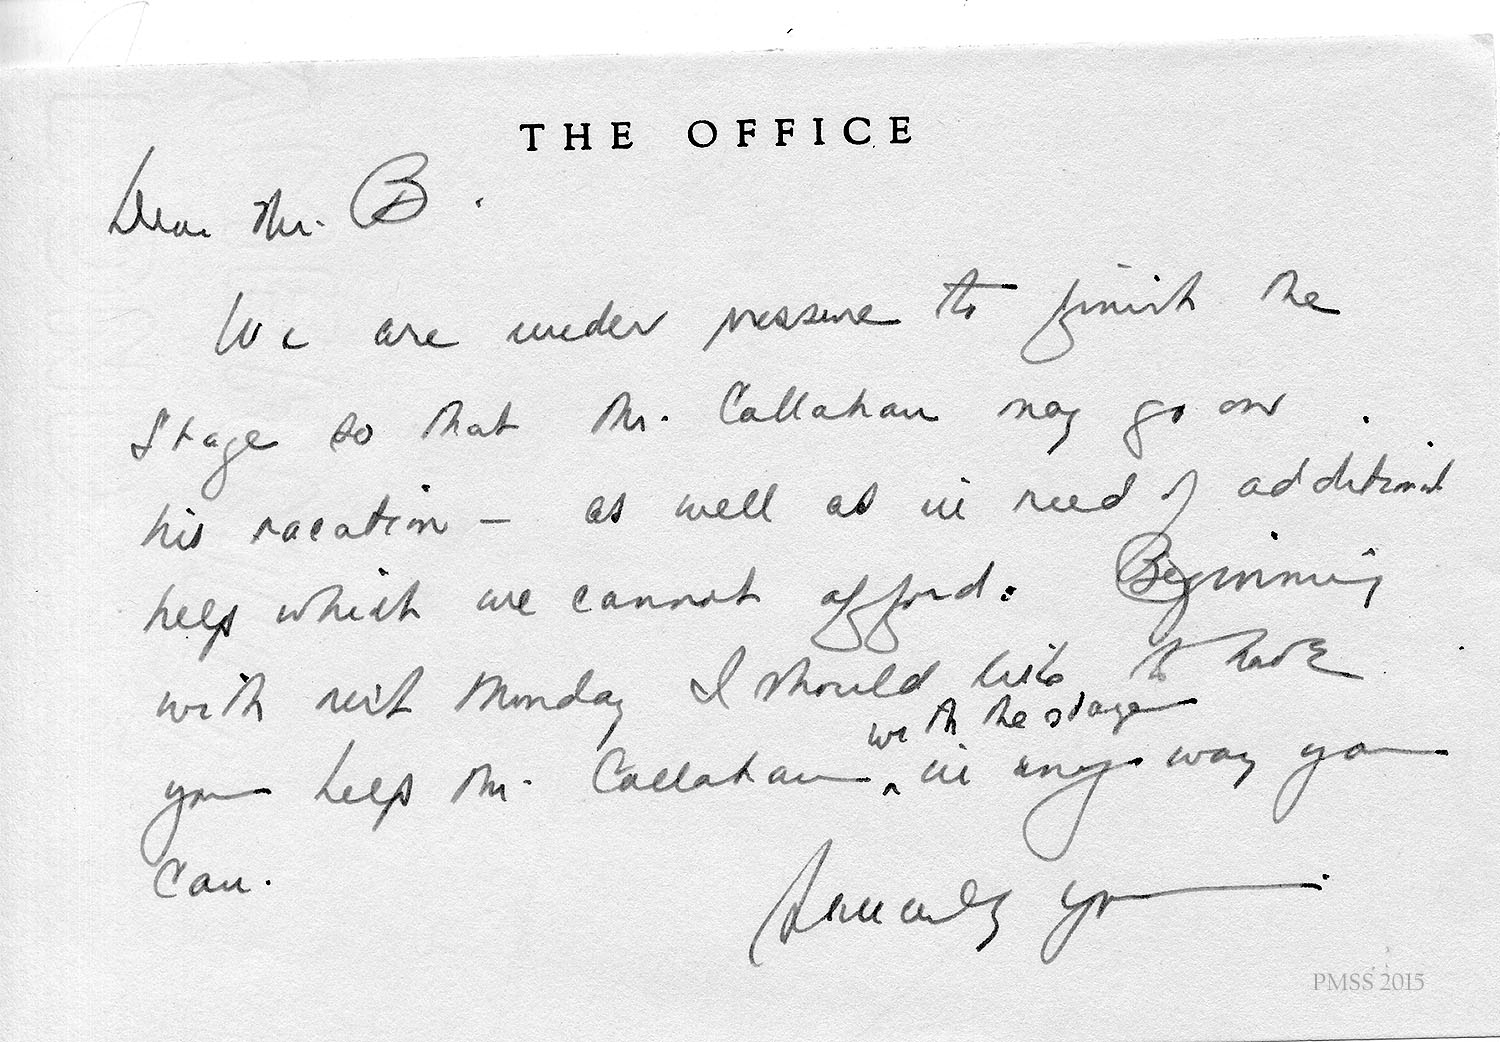 THE OFFICE
Dear Mr. B.
We are under pressure to finish the
stage so that Mr. Callahan may go on
his vacation — as well as in need of additional
help which we cannot afford. Beginning
with next Monday I should like to have
with the stage
you help Mr. Callahan ^ in any way you
can.
Sincerely yours
PMSS 2015